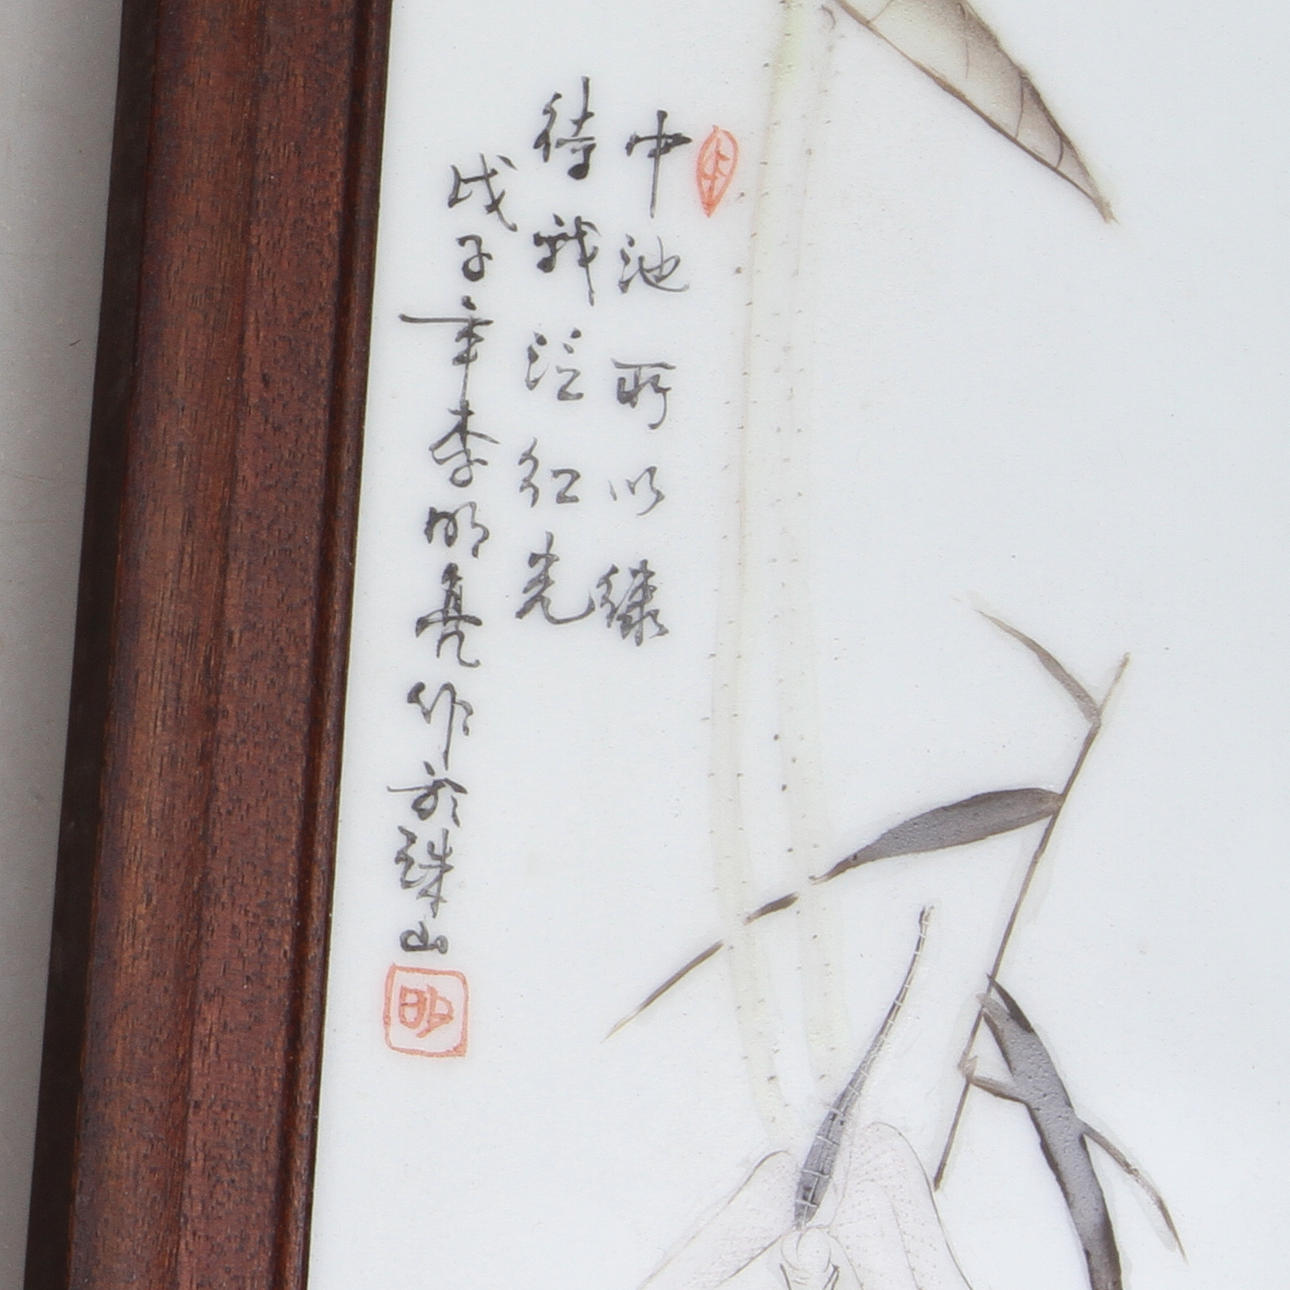 中池所以绿
待我泛红光
戊子年李明亮作於珠山
明